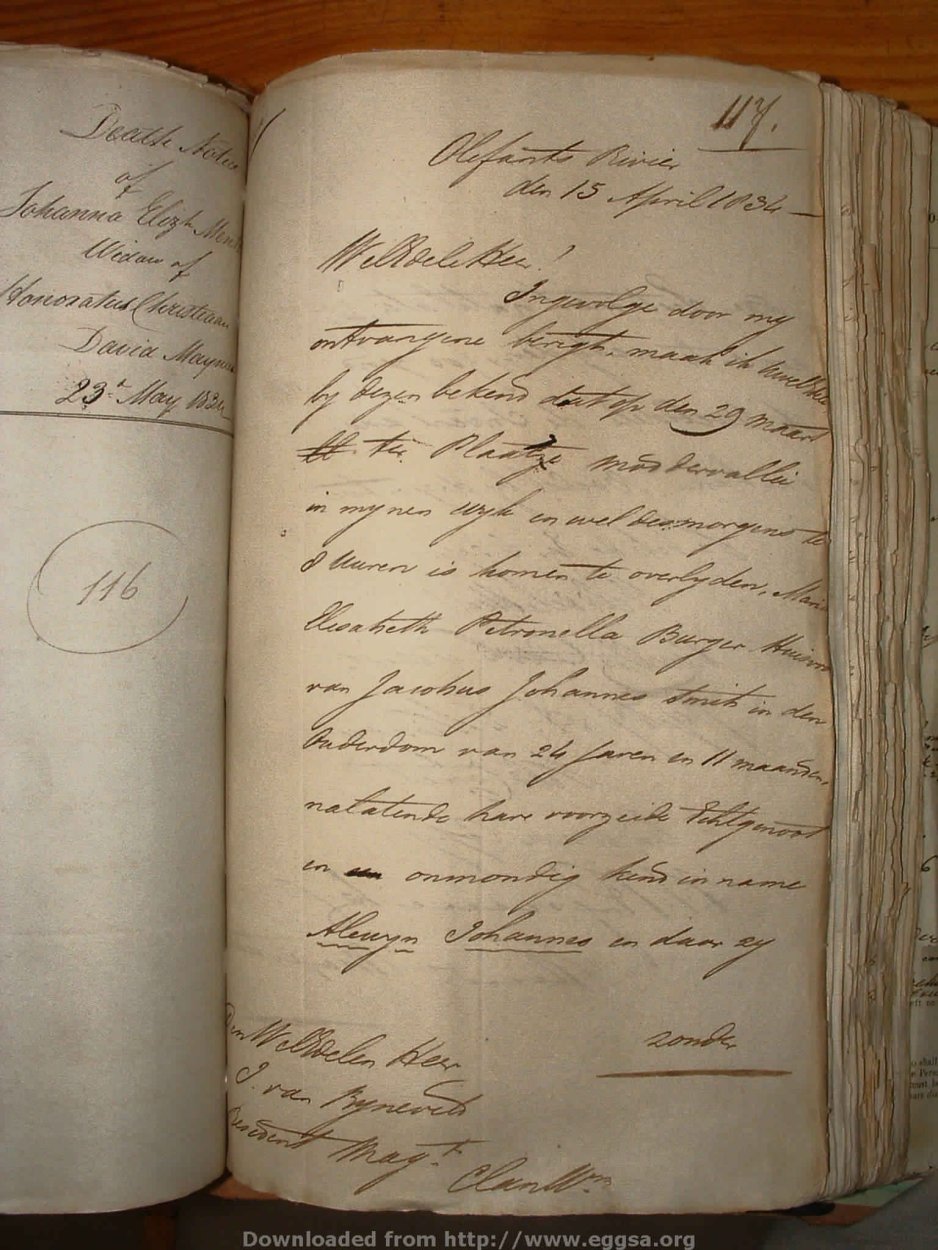 Death Notice
of
Johanna Elizh
Widow of
Honoratus Christiaan
David Mayn
23d May 1834
116
117.
Olefants Rivier
den 15 April 1834
WelEdele Heer!
Ingevolge door my
ontvangene berigt, maak ik
by dezen bekend dat op den 29 maart
ll. ter Plaatze moddervallei
in mynen wyk en wel des morgens te
8 Uuren is komen te overlyden, Maria
Elesabeth Petronella Burger Huisv
van Jacobus Johannes Smit in den
Ouderdom van 24 Jaren en 11 maanden,
nalatende hare voorzeide Echtgenoot
en een onmondig kind in name
Alewyn Johannes en daar zy
zonder
Den WelEdelen Heer
J. van Ryneveld
Resident Magt.
ClanWm
Downloaded from http://www.eggsa.org